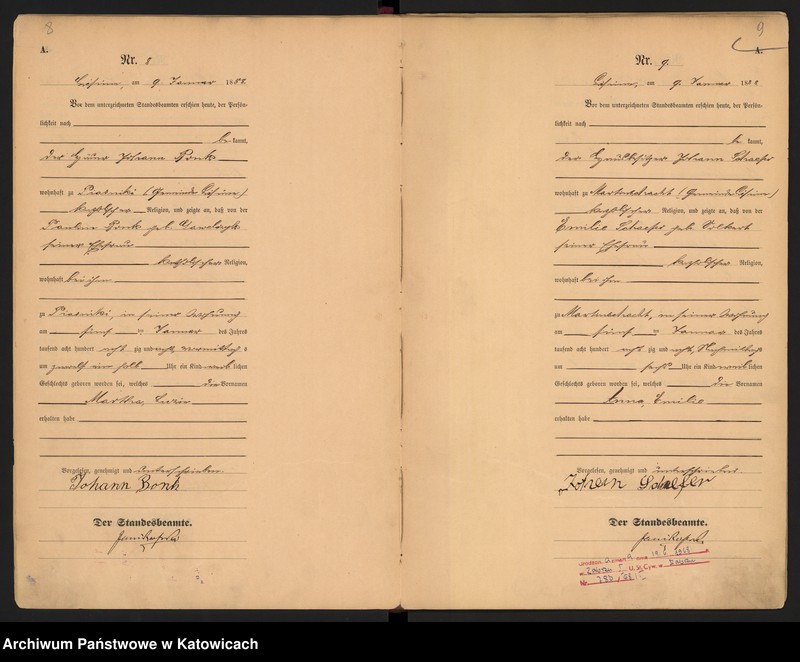 8
A.
Nr. 8
am 9. Januar 1888.
Vor dem unterzeichneten Standesbeamten erschien heute, der Persön-
lichkeit nach
be kannt,
der Johann Bonk
wohnhaft zu Piasniki (Gemeinde
katholischer Religion, und zeigte an, daß von der
Pauline Bonk geb.
seiner Ehefrau
katholischer Religion,
wohnhaft bei ihm
zu Piasniki, in seiner Wohnung
am fünf ten Januar des Jahres
tausend acht hundert acht zig und acht, vormittags
um zwölf ein halb Uhr ein Kind weib lichen
Geschlechts geboren worden sei, welches die Vornamen
Martha,
erhalten habe
Vorgelesen, genehmigt und unterschrieben.
Johann Bonk
Der Standesbeamte.
9
A.
Nr. 9.
am 9. Januar 1888
Vor dem unterzeichneten Standesbeamten erschien heute, der Persön-
lichkeit nach
be kannt,
der Johann Schaefer
wohnhaft zu Martenschacht (Gemeinde
katholischer Religion, und zeigte an, daß von der
Emilie Schaefer geb.
seiner Ehefrau
katholischer Religion,
wohnhaft bei ihm
zu Martenschacht, in seiner Wohnung
am fünf ten Januar des Jahres
tausend acht hundert acht zig und acht, Nachmittags
um sechs Uhr ein Kind weib lichen
Geschlechts geboren worden sei, welches die Vornamen
Anna, Emilie
erhalten habe
Vorgelesen, genehmigt und unterschrieben.
Schaefer
Der Standesbeamte.
Archiwum Państwowe w Katowicach